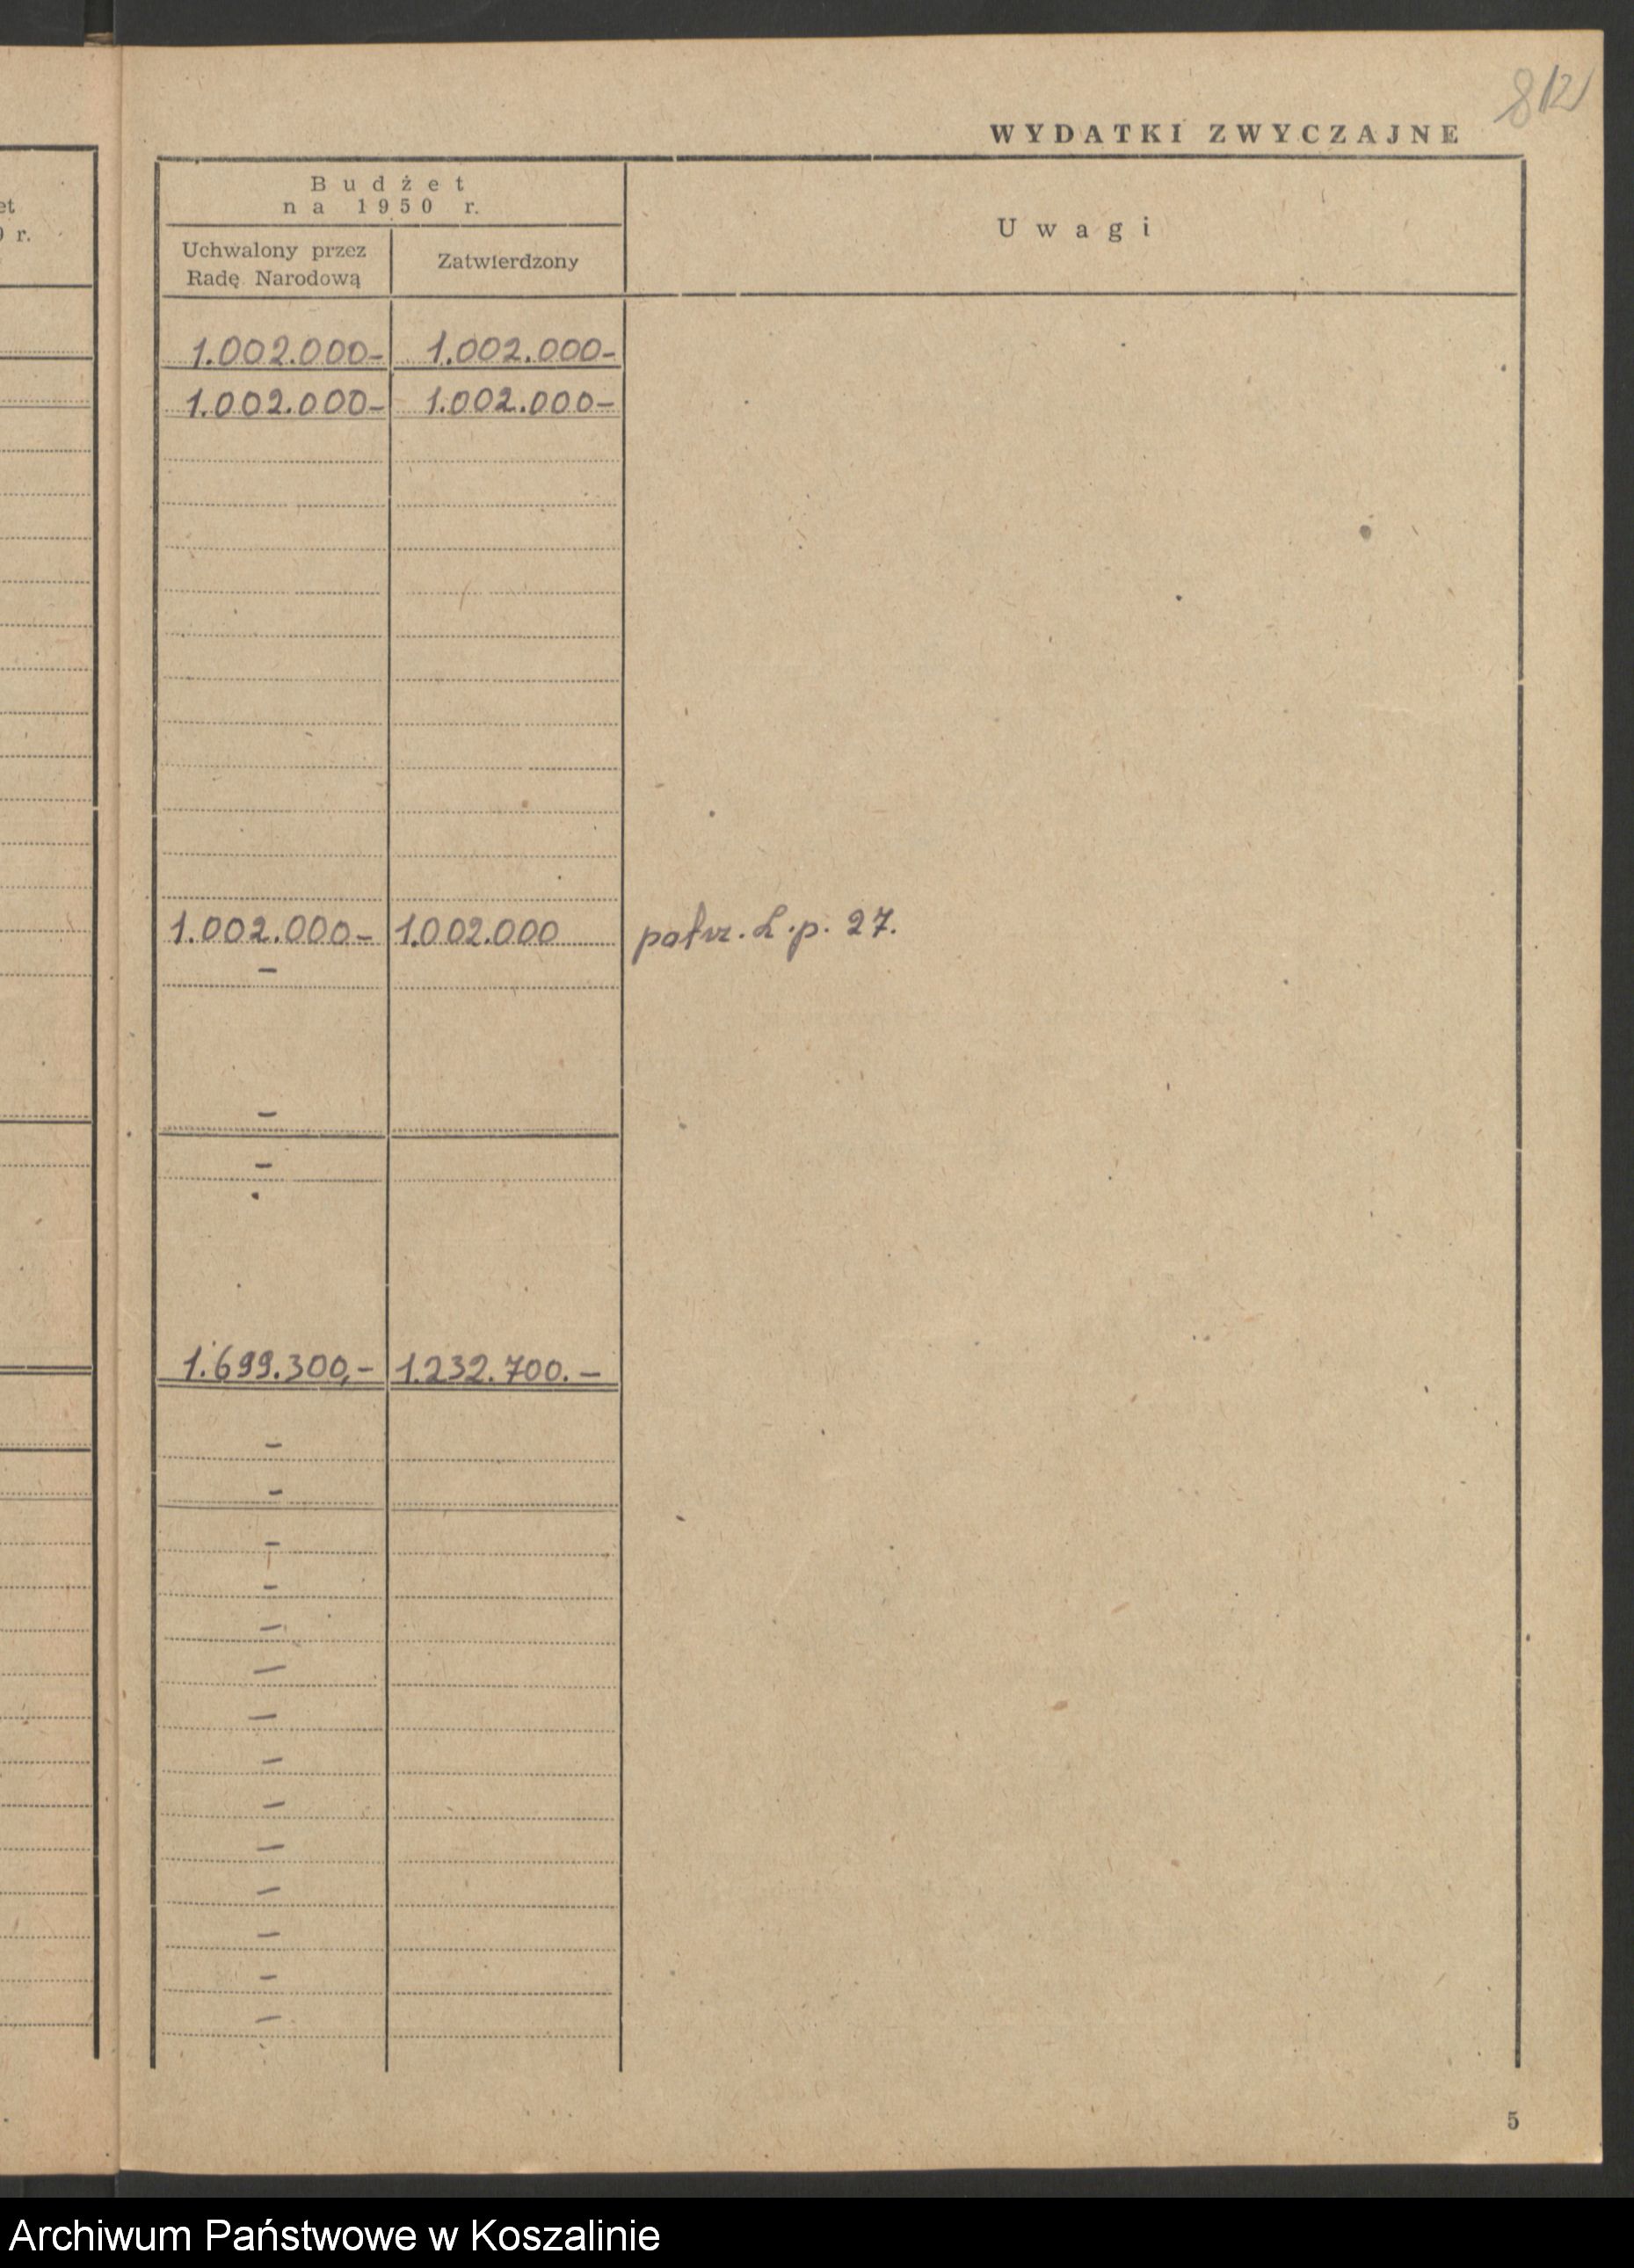 812
WYDATKI ZWYCZAJNE
et
r.
Budżet
na 1950 r.
Uwagi
Uchwalony przez
Radę Narodową
Zatwierdzony
1.002.000- 1.002.000-
1.002.000- 1.002.000-
1.002.000- 1.002.000 patrz. L.p. 27.
-
-
-
1.699.300,- 1.232.700.-
-
-
-
-
-
-
-
-
-
-
-
-
-
-
5
Archiwum Państwowe w Koszalinie